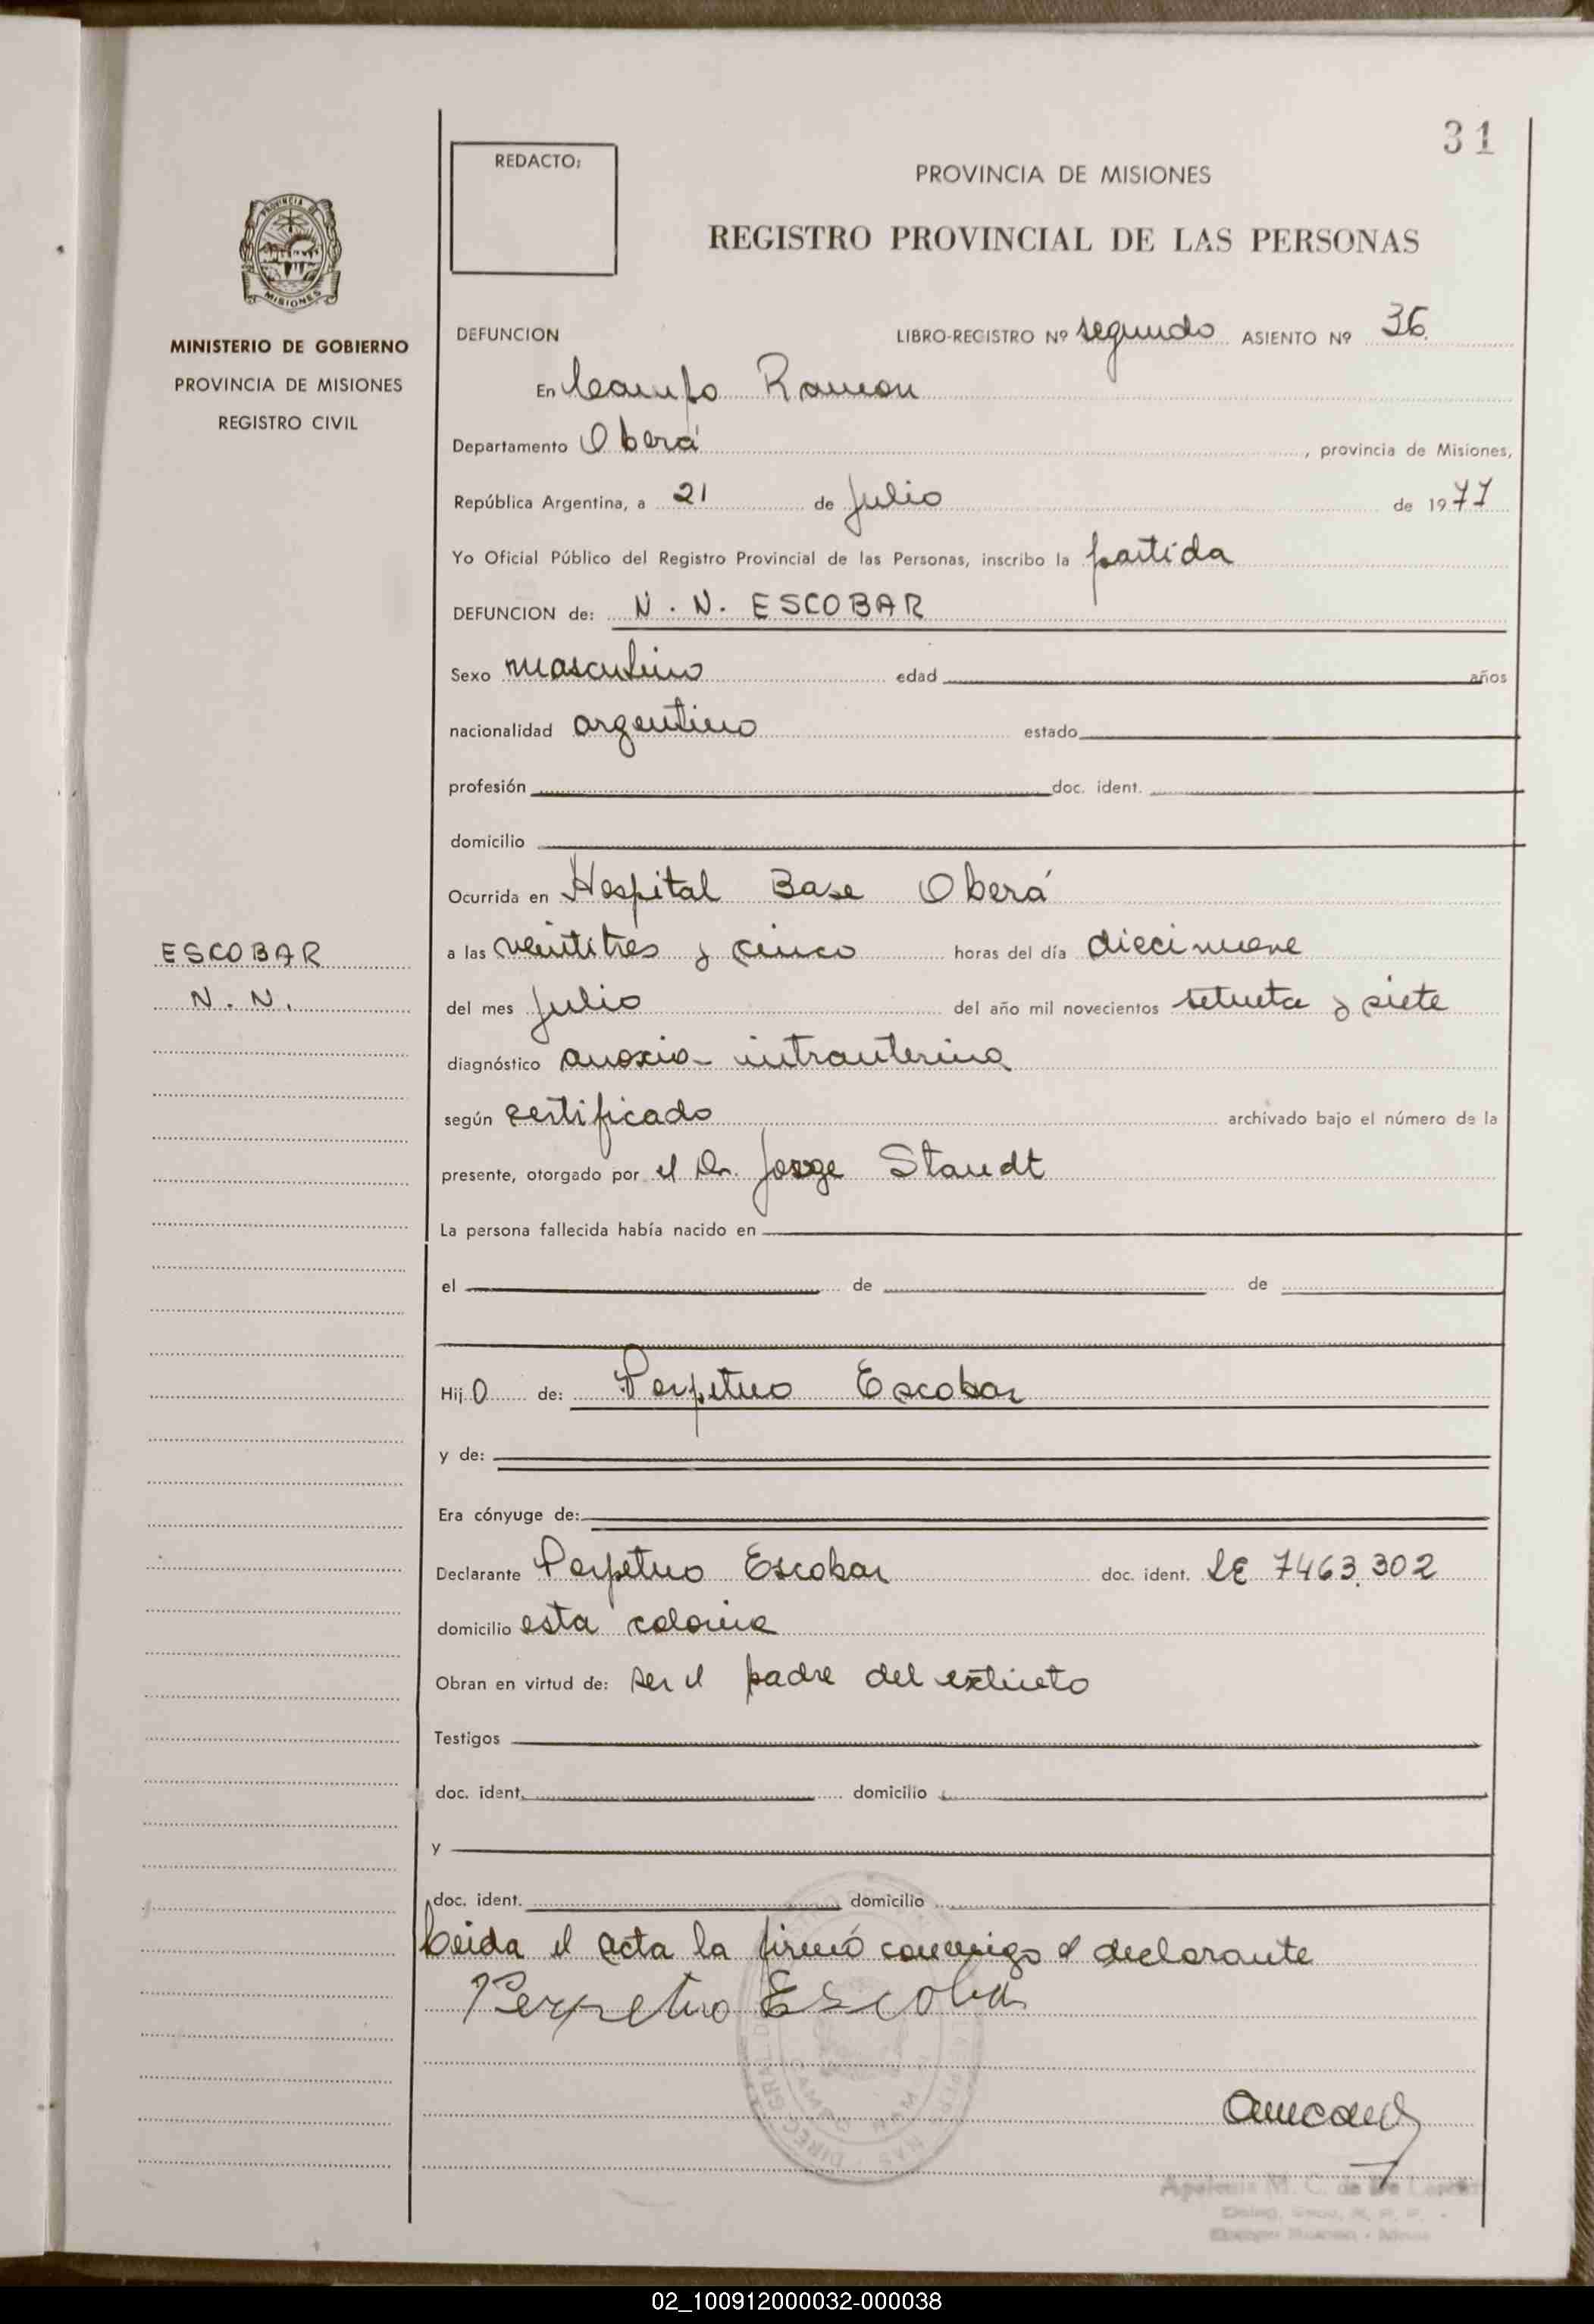 31
REDACTO:
PROVINCIA DE MISIONES
REGISTRO PROVINCIAL DE LAS PERSONAS
PROVINCIA DE
MISIONES
MINISTERIO DE GOBIERNO
PROVINCIA DE MISIONES
REGISTRO CIVIL
DEFUNCION LIBRO-REGISTRO Nº segundo ASIENTO Nº 36.
En Campo Ramon
Departamento Oberá, provincia de Misiones,
República Argentina, a 21 de Julio de 1977
Yo Oficial Público del Registro Provincial de las Personas, inscribo la partida
DEFUNCION de: N. N. ESCOBAR
Sexo masculino edad años
nacionalidad argentino estado
profesión doc. ident.
domicilio
Ocurrida en Hospital Base Oberá
ESCOBAR
N. N.
a las veintitres y cinco horas del día diecinueve
del mes Julio del año mil novecientos setenta y siete
diagnóstico anoxia- intrauterina
según certificado archivado bajo el número de la
presente, otorgado por el Dr. Jorge Staudt
La persona fallecida había nacido en
el de de
Hijo de: Perpetuo Escobar
y de:
Era cónyuge de:
Declarante Perpetuo Escobar doc. ident. LE 7463.302
domicilio esta colonia
Obran en virtud de: ser el padre del extinto
Testigos
doc. ident. domicilio
y
doc. ident. domicilio
Leida el acta la firmó conmigo el declarante
Perpetuo Escobar
02_100912000032-000038